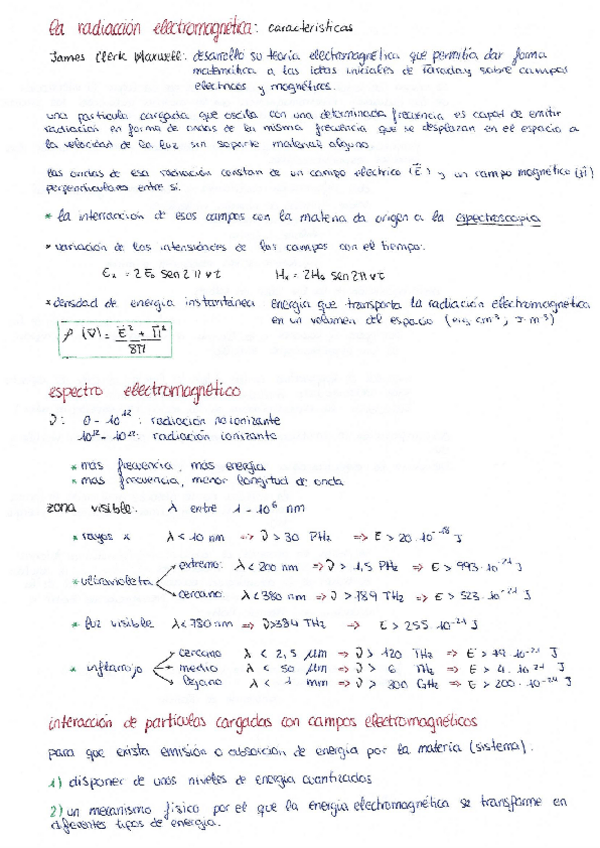 la radiación electromagnética: características
James Clerk Maxwell: desarrolló su teoría electromagnética que permitía dar forma
matemática a las ideas iniciales de Faraday sobre campos
eléctricos y magnéticos.
una partícula cargada que oscila con una determinada frecuencia es capaz de emitir
radiación en forma de ondas de la misma frecuencia que se desplazan en el espacio a
la velocidad de la luz sin soporte material alguno.
las ondas de esa radiación constan de un campo eléctrico (E⃗) y un campo magnético (H⃗)
perpendiculares entre sí.
* la interracción de esos campos con la materia da origen a la espectroscopia
* variación de las intensidades de los campos con el tiempo:
Eₓ = 2E₀ sen 2πνt Hₓ = 2H₀ sen 2πνt
* densidad de energía instantánea energía que transporta la radiación electromagnética
en un volumen del espacio (erg cm³; J·m³)
ρ(ν) = (E² + H²) / 8π
espectro electromagnético
ν: 0 - 10¹² : radiación no ionizante
10¹² - 10²² : radiación ionizante
* más frecuencia, más energía
* más frecuencia, menor longitud de onda
zona visible: λ entre 1 - 10⁶ nm
* rayos x λ < 10 nm ⇒ ν > 30 PHz ⇒ E > 20·10⁻¹⁸ J
* ultravioleta
extremo: λ < 200 nm ⇒ ν > 1,5 PHz ⇒ E > 993·10⁻²¹ J
cercano: λ < 380 nm ⇒ ν > 789 THz ⇒ E > 523·10⁻²¹ J
* luz visible λ < 780 nm ⇒ ν > 384 THz ⇒ E > 255·10⁻²¹ J
* infrarrojo
cercano λ < 2,5 μm ⇒ ν > 120 THz ⇒ E > 79·10⁻²¹ J
medio λ < 50 μm ⇒ ν > 6 THz ⇒ E > 4·10⁻²¹ J
lejano λ < 1 mm ⇒ ν > 300 GHz ⇒ E > 200·10⁻²⁴ J
interacción de partículas cargadas con campos electromagnéticos
para que exista emisión o absorción de energía por la materia (sistema).
1) disponer de unos niveles de energía cuantizados
2) un mecanismo físico por el que la energía electromagnética se transforme en
diferentes tipos de energía.